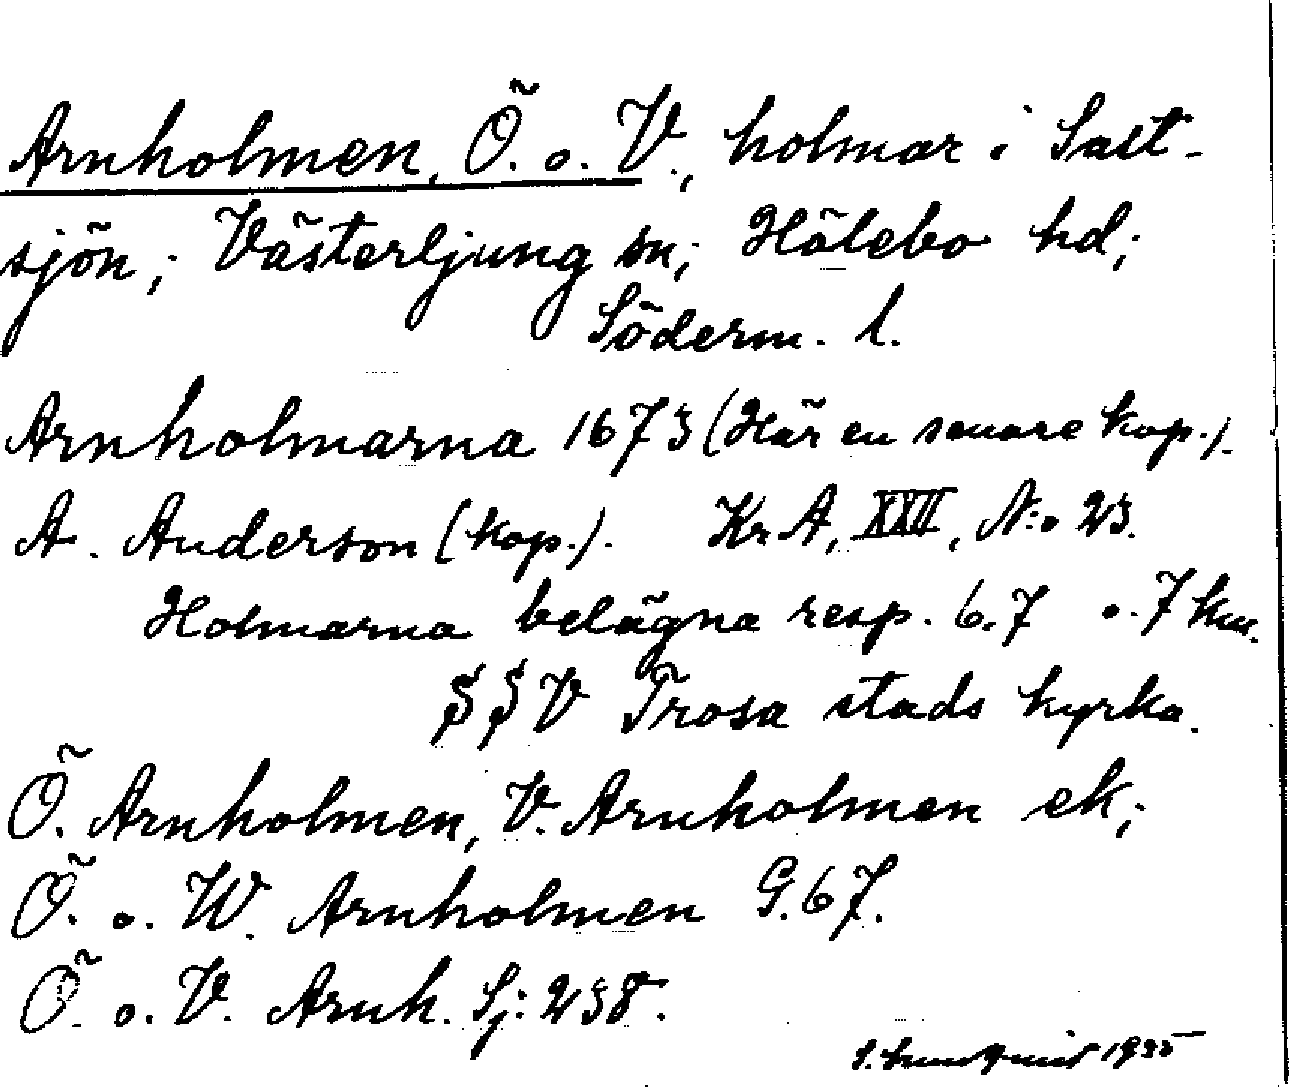 Arnholmen, Ö. o. V., holmar i Salt-
sjön; Västerljung sn; Hölebo hd;
Söderm. l.
Arnholmarna 1673 (Här en senare kop.).
A. Anderson (kop.). Kr. A, XXII, N:o 23.
Holmarna belägna resp. 6.7 o. 7 km.
SSV Trosa stads kyrka.
Ö. Arnholmen, V. Arnholmen ek;
Ö. o. W. Arnholmen G. 67.
Ö. o. V. Arnh. Sj: 238.
1935